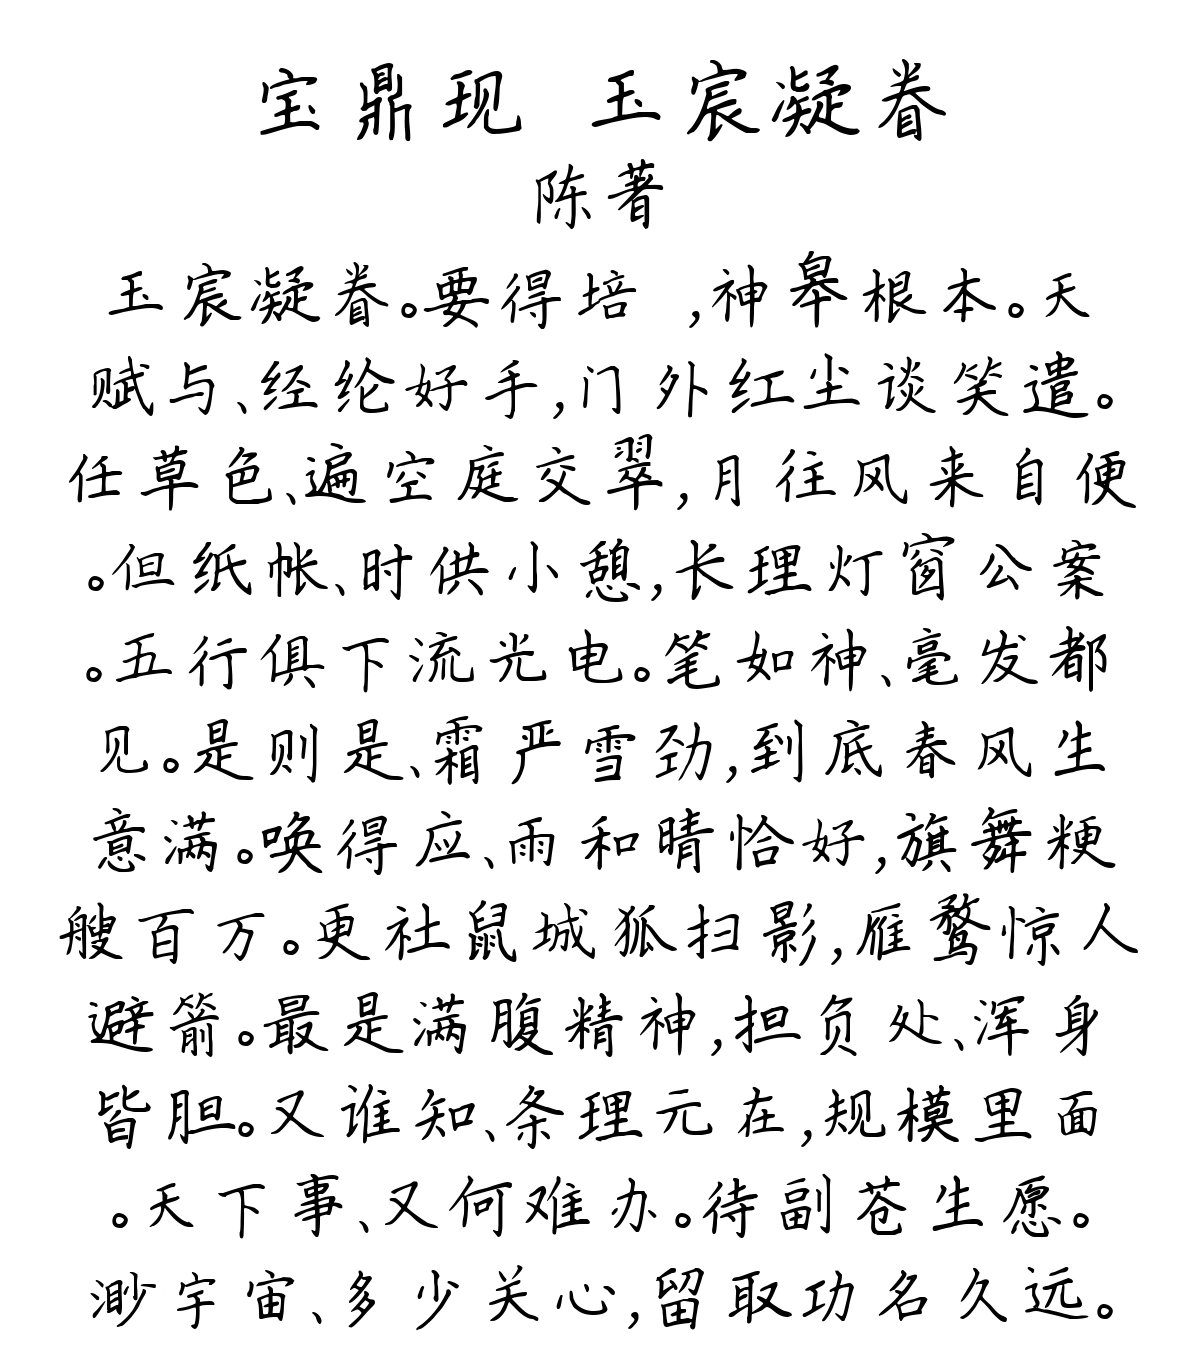 宝鼎现 玉宸凝眷
陈著
玉宸凝眷。要得培 ,神皋根本。天
赋与、经纶好手,门外红尘谈笑遣。
任草色、遍空庭交翠,月往风来自便
。但纸帐、时供小憩,长理灯窗公案
。五行俱下流光电。笔如神、毫发都
见。是则是、霜严雪劲,到底春风生
意满。唤得应、雨和晴恰好,旗舞粳
艘百万。更社鼠城狐扫影,雁鹜惊人
避箭。最是满腹精神,担负处、浑身
皆胆。又谁知、条理元在,规模里面
。天下事、又何难办。待副苍生愿。
渺宇宙、多少关心,留取功名久远。